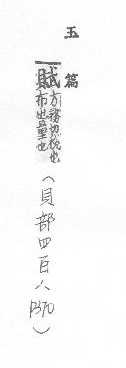 玉篇
賦
方務切稅也
布也量也
(貝部四百八
P370)